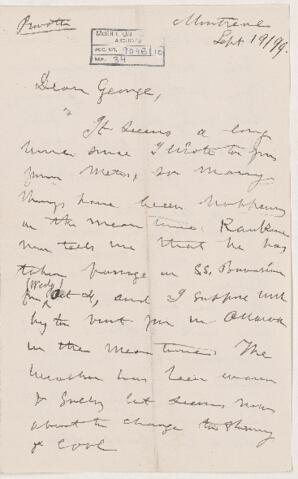 Private
Montreal
Sept 19/99.
McGILL UNI
ARCHIVES
ACC. NO. 909B/10
REF. 34
Dear George,
It seems a long
time since I wrote to you
from so many
things have been happening
in the mean time. Rankine
now tells me that he has
taken passage in SS. Bavarian
for Oct 4, and I suppose will
try to visit you in Ottawa
in the mean time. The
weather has been warm
& but seems now
about to change to
& cool